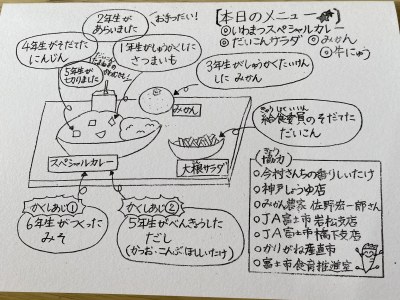 2年生が
あらいました
おきったい!
[本日のメニュー]
◎いわまつスペシャルカレー
◎だいこんサラダ ◎みかん
◎牛にゅう
4年生がそだてた
にんじん
1年生がしゅうかくした
さつまいも
5年生が
切りました
3年生がしゅうかくたいけん
した みかん
みかん
きゅうしょくいいん
給食委員のそだてた
だいこん
スペシャルカレー
大根サラダ
かくしあじ①
6年生がつくった
みそ
かくしあじ②
5年生がべんきょうした
だし
(かつお・こんぶ・ほししいたけ)
きょうりょく
協力
○今村さんちの香りしいたけ
○神戸しょうゆ店
○みかん農家 佐野宏一郎さん
○JA富士市岩松支店
○JA富士市橋下支店
○かりがね産直市
○富士市食育推進室